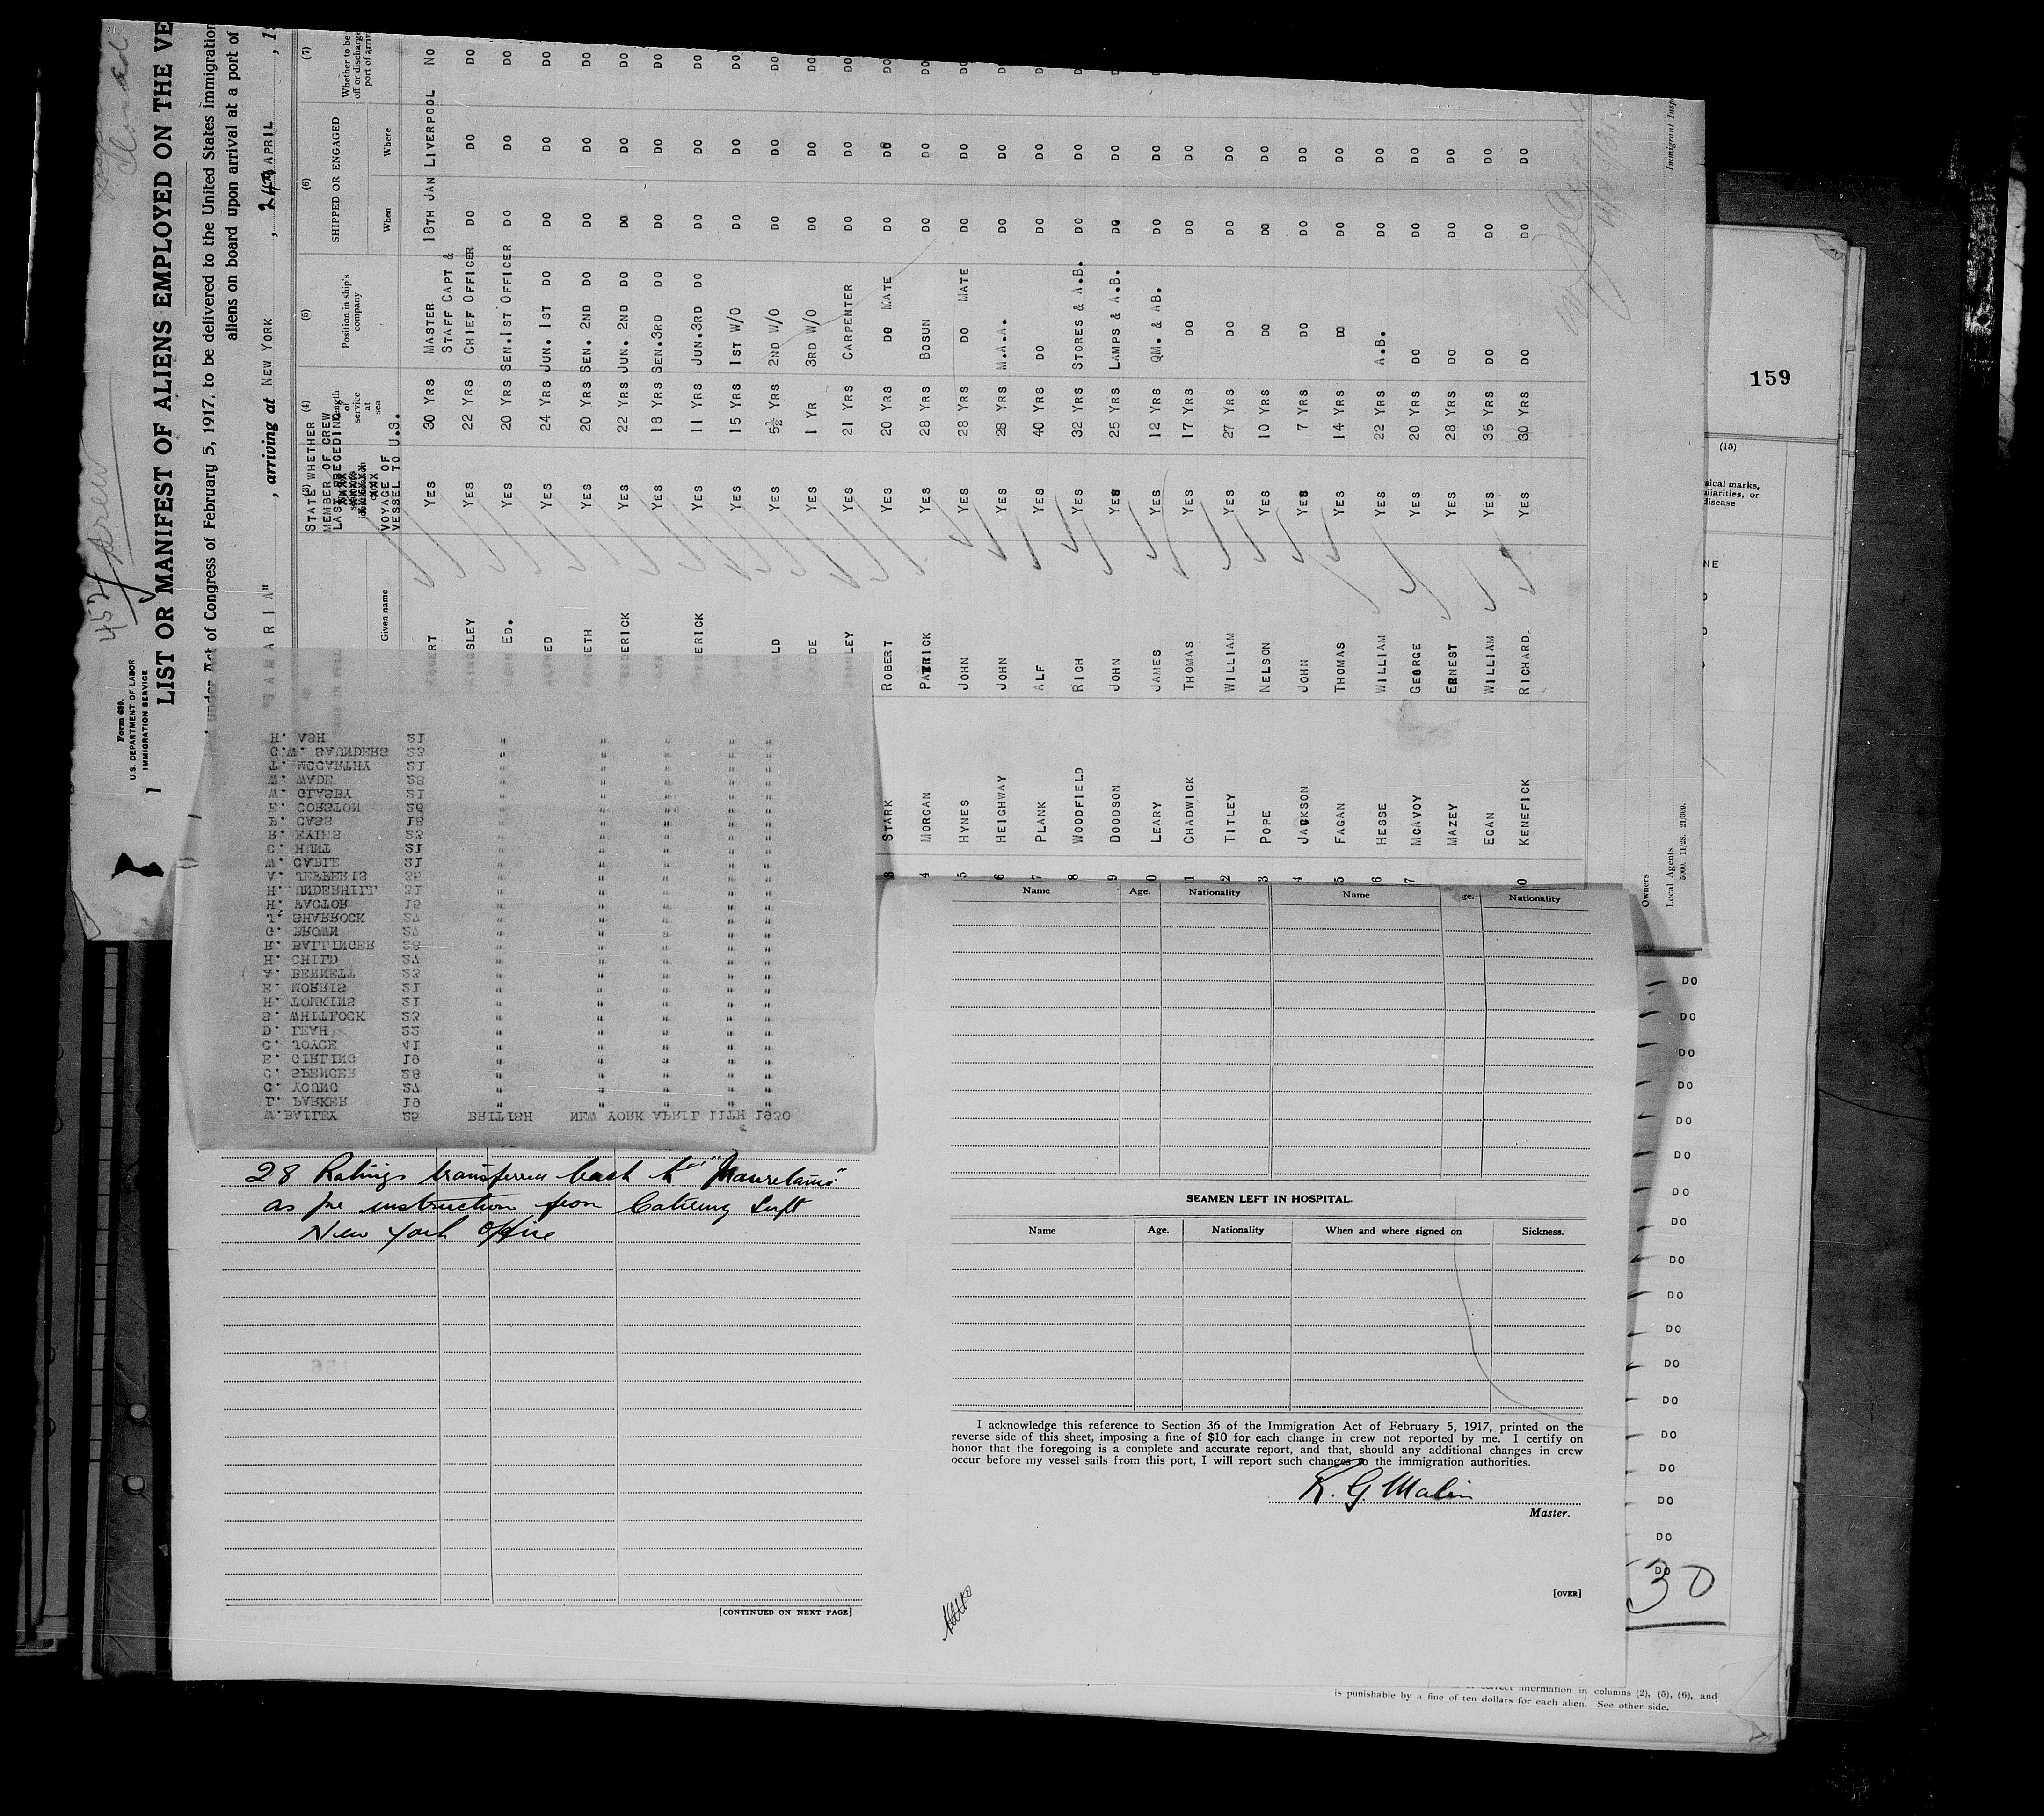 Form 680.
U.S. DEPARTMENT OF LABOR
IMMIGRATION SERVICE
457 Crew
LIST OR MANIFEST OF ALIENS EMPLOYED ON THE VE
under Act of Congress of February 5, 1917, to be delivered to the United States immigration
aliens on board upon arrival at a port of
"SAMARIA" , arriving at NEW YORK , 24 APRIL , 1
(3) (4) (5) (6) (7)
STATE WHETHER MEMBER OF CREW LAST PRECEDING VOYAGE OF VESSEL TO U.S.
Length of service at sea
Position in ship's company
SHIPPED OR ENGAGED
Whether to be off or discharge port of arriv
Given name When Where
ERT YES 30 YRS MASTER 18TH JAN LIVERPOOL NO
STAFF CAPT &
SLEY YES 22 YRS CHIEF OFFICER DO DO DO
ED. YES 20 YRS SEN.1ST OFFICER DO DO DO
ED YES 24 YRS JUN. 1ST DO DO DO DO
ETH YES 20 YRS SEN. 2ND DO DO DO DO
ERICK YES 22 YRS JUN. 2ND DO DO DO DO
YES 18 YRS SEN.3RD DO DO DO DO
ERICK YES 11 YRS JUN.3RD DO DO DO DO
YES 15 YRS 1ST W/O DO DO DO
ALD YES 5½ YRS 2ND W/O DO DO DO
DE YES 1 YR 3RD W/O DO DO DO
LEY YES 21 YRS CARPENTER DO DO DO
3 STARK ROBERT YES 20 YRS DO MATE DO DO DO
4 MORGAN PATRICK YES 28 YRS BOSUN DO DO DO
5 HYNES JOHN YES 28 YRS DO MATE DO DO DO
6 HEIGHWAY JOHN YES 28 YRS M.A.A. DO DO
7 PLANK ALF YES 40 YRS DO DO DO
8 WOODFIELD RICH YES 32 YRS STORES & A.B. DO DO
9 DOODSON JOHN YES 25 YRS LAMPS & A.B. DO DO
0 LEARY JAMES YES 12 YRS QM. & AB. DO DO
1 CHADWICK THOMAS YES 17 YRS DO DO DO
2 TITLEY WILLIAM YES 27 YRS DO DO DO
3 POPE NELSON YES 10 YRS DO DO DO
4 JACKSON JOHN YES 7 YRS DO DO DO
5 FAGAN THOMAS YES 14 YRS DO DO DO
6 HESSE WILLIAM YES 22 YRS A.B. DO DO
7 MCAVOY GEORGE YES 20 YRS DO DO DO
MAZEY ERNEST YES 28 YRS DO DO DO
EGAN WILLIAM YES 35 YRS DO DO DO
0 KENEFICK RICHARD YES 30 YRS DO DO DO
Owners
Local Agents
5000. 11/28. 21/300.
Immigrant Insp
W.BAILEY 25 BRITISH NEW YORK APRIL 11TH 1930
L. PARKER 19 " " " " "
C. YOUNG 27 " " " " "
C. SPENCER 28 " " " " "
E. GIRLING 19 " " " " "
C. JOYCE 41 " " " " "
D. LEAH 22 " " " " "
S. WHITLOCK 23 " " " " "
H. TOMKINS 21 " " " " "
E. MORRIS 21 " " " " "
A. BENNETT 23 " " " " "
H. CHILD 27 " " " " "
R. BALLINGER 28 " " " " "
G. BROWN 27 " " " " "
T. SHARROCK 27 " " " " "
H. FACTOR 19 " " " " "
H. UNDERHILL 21 " " " " "
A. JEFFERIS 35 " " " " "
W. CABLE 21 " " " " "
C. HUNT 21 " " " " "
R. EYLES 23 " " " " "
F. CASS 18 " " " " "
E. CORSTON 26 " " " " "
W. GLASBY 21 " " " " "
W. WADE 28 " " " " "
T. MCCARTHY 21 " " " " "
C.W. SAUNDERS 23 " " " " "
H. ASH 21 " " " " "
28 Ratings transferred back to "Mauretania"
as per instruction from Catering Supt
New York Office
[CONTINUED ON NEXT PAGE]
Name Age. Nationality Name Age. Nationality
SEAMEN LEFT IN HOSPITAL.
Name Age. Nationality When and where signed on Sickness.
I acknowledge this reference to Section 36 of the Immigration Act of February 5, 1917, printed on the
reverse side of this sheet, imposing a fine of $10 for each change in crew not reported by me. I certify on
honor that the foregoing is a complete and accurate report, and that, should any additional changes in crew
occur before my vessel sails from this port, I will report such changes to the immigration authorities.
R. G. Malin
Master.
[OVER]
159
(15)
sical marks,
uliarities, or
disease
NE
DO
DO
DO
DO
DO
DO
DO
DO
DO
DO
DO
DO
DO
DO
DO
DO
DO
DO
30
correct information in columns (2), (5), (6), and
is punishable by a fine of ten dollars for each alien. See other side.